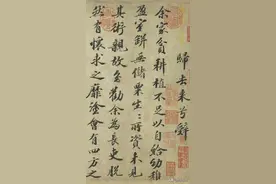 歸去來兮辭
余家貧耕植不足以自給幼稚
盈室缾無儲粟生〻所資未見
其術親故多勸余為長吏脫
然有懷求之靡塗會有四方之